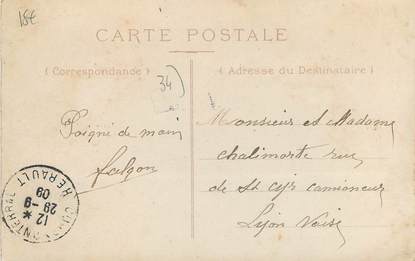 18€
CARTE POSTALE
(Correspondance)
(Adresse du Destinataire)
34
Poigné de main
falgon
Monsieur et Madame
chalimorte rue
de St Cyr camioneur
Lyon Vaise
12 *
29-9
09
HERAULT